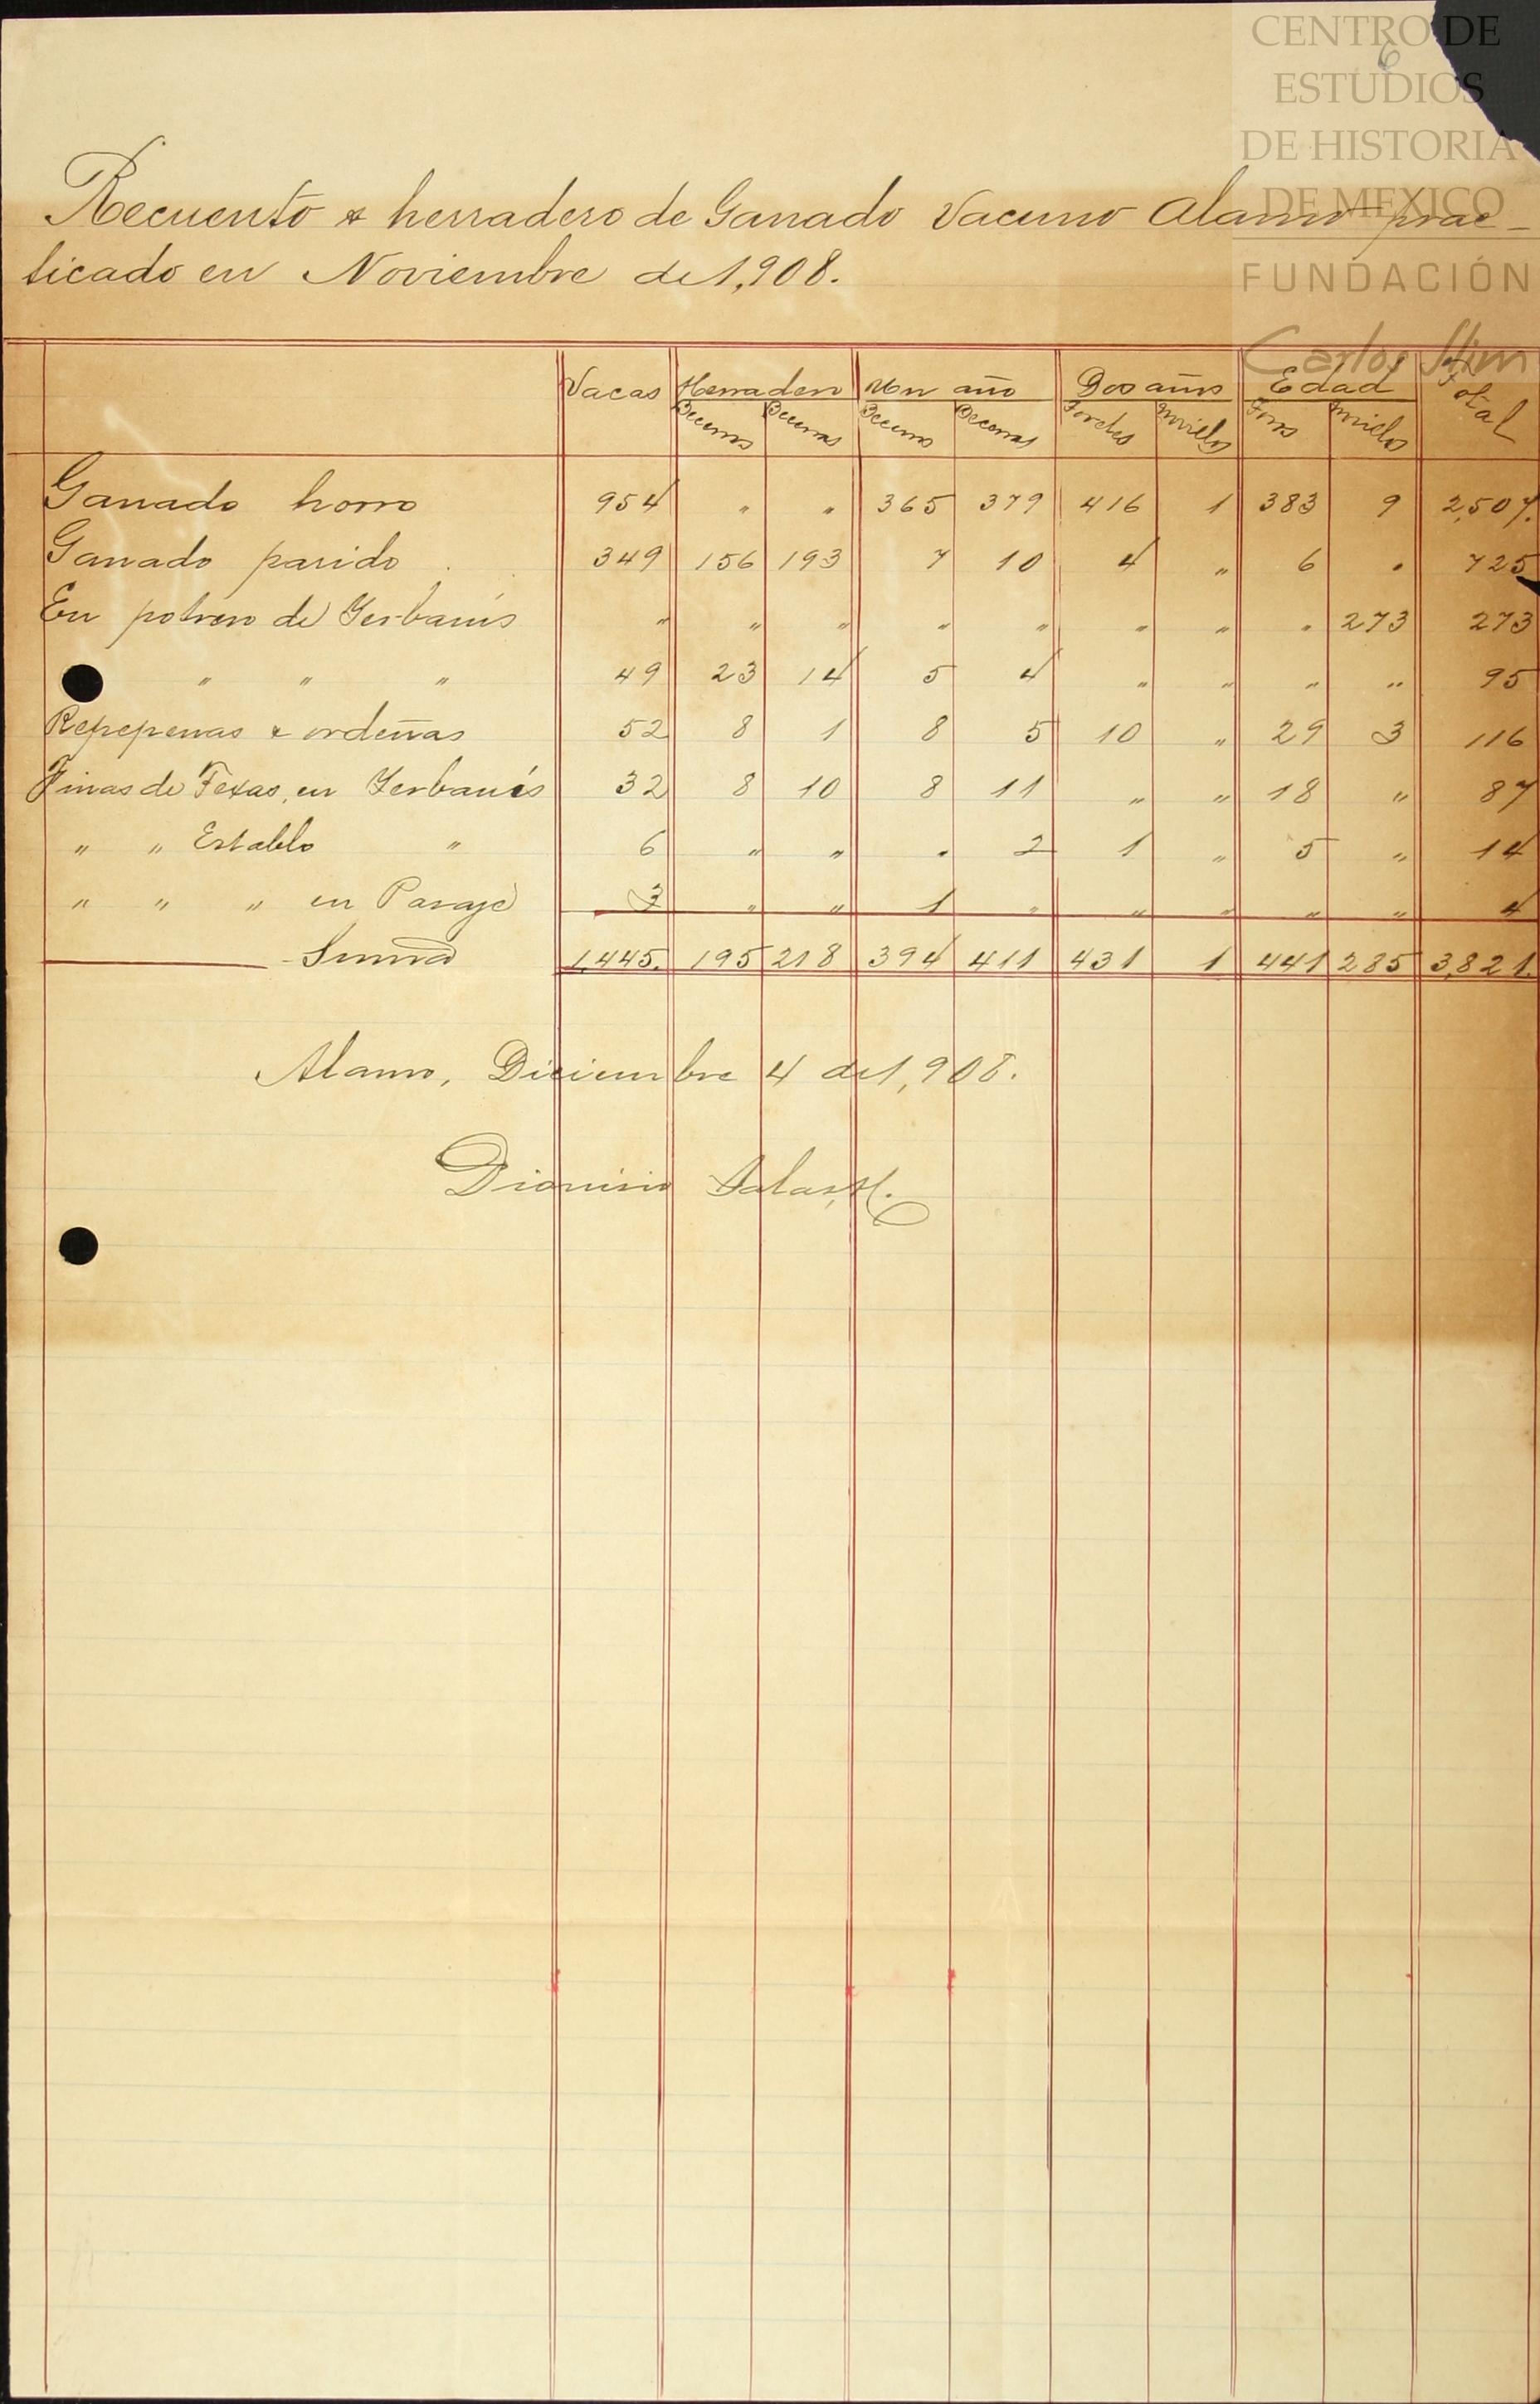 CENTRO DE
6
ESTUDIOS
DE HISTORIA
DE MEXICO
FUNDACIÓN
Carlos Slim
Recuento & herradero de Ganado Vacuno Alamo prac-
ticado en Noviembre de 1,908.
Vacas Herradero Un año Dos años Edad Total
Becerros Becerras Becerros Becerras Toretes Novillos Toros Novillos
Ganado horro 954 " " 365 379 416 1 383 9 2,507.
Ganado parido 349 156 193 7 10 4 " 6 " 725
En potrero de Yerbanís " " " " " " " " 273 273
" " " 49 23 14 5 4 " " " " 95
Repepenas & ordeñas 52 8 1 8 5 10 " 29 3 116
Finas de Texas, en Yerbanís 32 8 10 8 11 " " 18 " 87
" " Establo " 6 " " " 2 1 " 5 " 14
" " " en Pasaje 3 " " 1 " " " " " 4
Suma 1,445. 195 218 394 411 431 1 441 285 3,821.
Alamo, Diciembre 4 de 1,908.
Dionisio Salas, H.